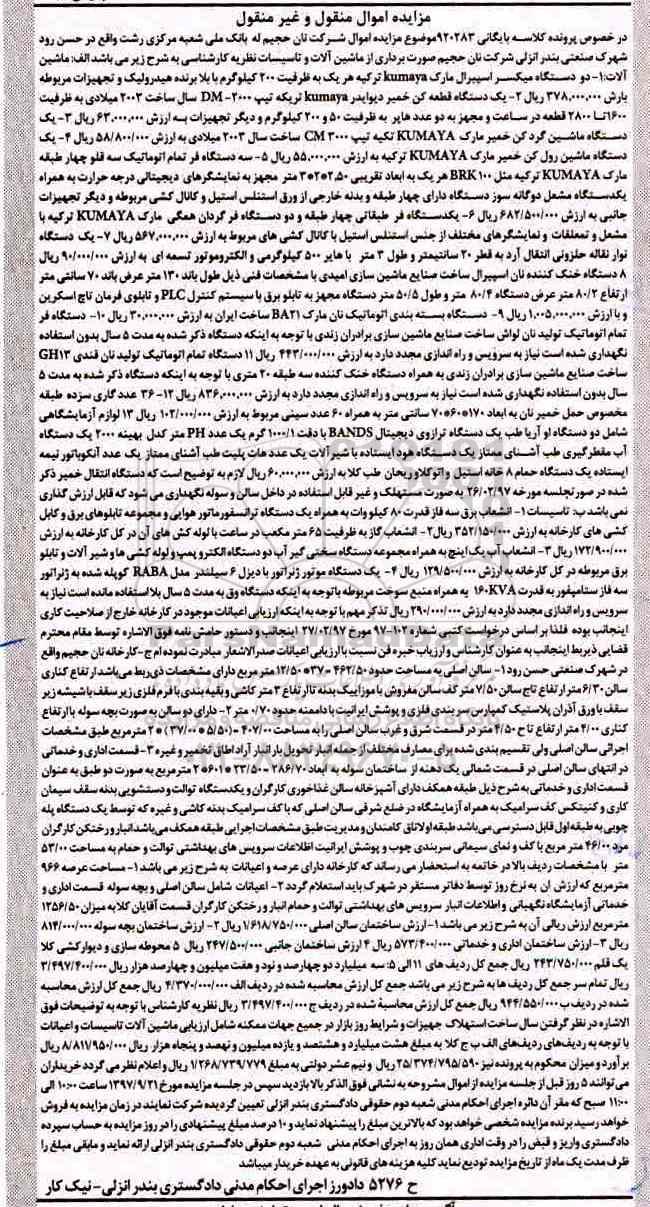 مزایده اموال منقول و غیر منقول
در خصوص پرونده کلاسه بایگانی ۹۲۰۲۸۳موضوع مزایده اموال شرکت نان حجیم له بانک ملی شعبه مرکزی رشت واقع در حسن رود
شهرک صنعتی بندر انزلی شرکت نان حجیم صورت برداری از ماشین آلات و تاسیسات نظریه کارشناسی به شرح زیر می باشد الف: ماشین
آلات:۱- دو دستگاه میکسر اسپیرال مارک kumaya ترکیه هر یک به ظرفیت ۲۰۰ کیلوگرم با بلا برنده هیدرولیک و تجهیزات مربوطه
بارش ۳۷۸,۰۰۰,۰۰۰ ریال ۲- یک دستگاه قطعه کن خمیر دیوایدر kumaya تریکه تیپ ۳۰۰۰- DM سال ساخت ۲۰۰۳ میلادی به ظرفیت
۱۶۰۰تا ۲۸۰۰ قطعه در ساعت و مجهز به دو عدد هاپر به ظرفیت ۵۰ و ۲۰۰ کیلوگرم و دیگر تجهیزات به ارزش ۶۳,۰۰۰,۰۰۰ ریال ۳- یک
دستگاه ماشین گرد کن خمیر مارک KUMAYA تکیه تیپ ۳۰۰۰ CM ساخت سال ۲۰۰۳ میلادی به ارزش ۵۸/۸۰۰/۰۰۰ ریال ۴- یک
دستگاه ماشین رول کن خمیر مارک KUMAYA ترکیه به ارزش ۵۵,۰۰۰,۰۰۰ ریال ۵- سه دستگاه فر تمام اتوماتیک سه قلو چهار طبقه
مارک KUMAYA ترکیه مثل BRK۱۰۰ هر یک به ابعاد تقریبی ۲.۵۰*۲*۳ متر مجهز به نمایشگرهای دیجیتالی درجه حرارت به همراه
یکدستگاه مشعل دوگانه سوز دستگاه دارای چهار طبقه و بدنه خارجی از ورق استنلس استیل و کانال کشی مربوطه و دیگر تجهیزات
جانبی به ارزش ۶۸۲/۵۰۰/۰۰۰ ریال ۶- یکدستگاه فر طبقاتی چهار طبقه و دو دستگاه فر گردان همگی مارک KUMAYA ترکیه با
مشعل و تمعلقات و نمایشگرهای مختلف از جنس استنلس استیل با کانال کشی های مربوط به ارزش ۵۶۷,۰۰۰,۰۰۰ ریال ۷- یک دستگاه
نوار نقاله حلزونی انتقال آرد به قطر ۲۰ سانتیمتر و طول ۳ متر با هاپر ۵۰۰ کیلوگرمی و الکتروموتور تسمه ای به ارزش ۹۰/۰۰۰/۰۰۰ ریال
۸ دستگاه خنک کننده نان اسپیرال ساخت صنایع ماشین سازی امیدی با مشخصات فنی ذیل طول باند ۱۳۰ متر عرض باند ۷۰ سانتی متر
ارتفاع ۸۰/۲ متر عرض دستگاه ۸۰/۴ متر و طول ۵۰/۵ متر دستگاه مجهز به تابلو برق با سیستم کنترل PLC و تابلوی فرمان تاچ اسکرین
و با ارزش ۱,۰۰۵,۰۰۰,۰۰۰ ریال ۹- دستگاه بسته بندی اتوماتیک نان مارک BA۲۱ ساخت ایران به ارزش ۳۰,۰۰۰,۰۰۰ ریال ۱۰- دستگاه فر
تمام اتوماتیک تولید نان لواش ساخت صنایع ماشین سازی برادران زندی با توجه به اینکه دستگاه ذکر شده به مدت ۵ سال بدون استفاده
نگهداری شده است نیاز به سرویس و راه اندازی مجدد دارد به ارزش ۴۴۳/۰۰۰/۰۰۰ ریال ۱۱ دستگاه تمام اتوماتیک تولید نان قندی GH۱۳
ساخت صنایع ماشین سازی برادران زندی به همراه دستگاه خنک کننده سه طبقه ۲۰ متری با توجه به اینکه دستگاه ذکر شده به مدت ۵
سال بدون استفاده نگهداری شده است نیاز به سرویس و راه اندازی مجدد دارد به ارزش ۸۳۶,۰۰۰,۰۰۰ ریال ۱۲- ۳۶ عدد گاری سرده طبقه
مخصوص حمل خمیر نان به ابعاد ۱۷۰*۶۰*۷۰ سانتی متر به همراه ۶۰ عدد سینی مربوط به ارزش ۱۰۲/۰۰۰/۰۰۰ ریال ۱۳ لوازم آزمایشگاهی
شامل دو دستگاه او آریا طب یک دستگاه ترازوی دیجیتال BANDS با دقت ۱۰۰۰/۱ گرم یک عدد PH متر کدل بهینه ۲۰۰۰ یک دستگاه
آب مقطرگیری طب آشنای ممتاز یک دستگاه هود ایستاده با شیر آلات یک عدد هات پلیت طب آشنای ممتاز یک عدد آنکوباتور نیمه
ایستاده یک دستگاه حمام ۸ خانه استیل و اتوکلاو ریحان طب کلا به ارزش ۶۰,۰۰۰,۰۰۰ ریال لازم به توضیح است که دستگاه انتقال خمیر ذکر
شده در صورتجلسه مورخه ۲۶/۰۲/۹۷ به صورت مستهلک و غیر قابل استفاده در داخل سالن و سوله نگهداری می شود که قابل ارزش گذاری
نمی باشد ب: تاسیسات ۱- انشعاب برق سه فاز قدرت ۸۰ کیلو وات به همراه یک دستگاه ترانسفورماتور هوایی و مجموعه تابلوهای برق و کابل
کشی های کارخانه به ارزش ۳۵۲/۱۵۰/۰۰۰ ریال۲- انشعاب گاز به ظرفیت ۶۵ متر مکعب در ساعت با لوله کش های آن در کل کارخانه به ارزش
۱۷۲/۹۰۰/۰۰۰ ریال ۳- انشعاب آب یک اینچ به همراه مجموعه دستگاه سختی گیر آب دو دستگاه الکترو پمپ و لوله کشی ها و شیر آلات و تابلو
برق مربوطه در کل کارخانه به ارزش ۱۲۹/۵۰۰/۰۰۰ ریال ۴- یک دستگاه موتور ژنراتور با دیزل ۶ سیلندر مدل RABA کوپله شده به ژنراتور
سه فاز ستامیفور به قدرت ۱۶۰KVA به همراه منبع سوخت مربوطه با توجه به اینکه دستگاه وق به مدت ۵ سال بلا استفاده مانده است نیاز به
سرویس و راه اندازی مجدد دارد به ارزش ۲۹۰/۰۰۰/۰۰۰ ریال تذکر مهم با توجه به اینکه ارزیابی اعیانات موجود در کارخانه خارج از صلاحیت کاری
اینجانب بوده فلذا بر اساس درخواست کتبی شماره ۱۰۲-۹۷ مورخ ۲۷/۰۲/۹۷ اینجانب و دستور حامش نامه فوق الاشاره توسط مقام محترم
قضایی ذیربط اینجانب به عنوان کارشناس و ارزیاب خبره فن نسبت با ارزیابی اعیانات صدرالاشعار مبادرت نموده ام ج-کارخانه نان حجیم واقع
در شهرک صنعتی حسن رود ۱- سالن اصلی به مساحت حدود ۴۶۲/۵۰ =۳۷*۱۲/۵۰ متر مربع دارای مشخصات ذی ربط می باشد ارتفاع کناری
سالن ۶/۳۰ متر ارتفاع تاج سالن ۷/۵۰ متر کف سالن مفروش با موزاییک بدنه تا ارتفاع ۳ متر کاشی و بقیه بندی با فرم فلزی زیر سقف با شیشه زیر
سقف با ورق آذران پلاستیک کمپارس سر بندی فلزی و پوشش ایرانیت با دامنه حدود ۰/۷۰ متر ۲- دارای دو سالن به صورت بچه سوله با ارتفاع
کناری ۴/۰۰ متر ارتفاع تاج ۴/۵۰ متر در قسمت شرق و غرب سالن اصلی را به مساحت ۴۰۷/۰۰ = (۵/۵۰ * ۳۷/۰۰) * ۲ مترمربع طبق مشخصات
اجرائی سالن اصلی ولی تقسیم بندی شده برای مصارف مختلف از جمله انبار تحویل بار انبار آرد اطاق تخمیر و غیره ۳- قسمت اداری و خدماتی
در انتهای سالن اصلی در قسمت شمالی یک دهنه از ساختمان سوله به ابعاد ۲۸۶/۷۰ = ۲۳/۵۰ * ۶۰۱ * ۲ مترمربع به صورت دو طبق به عنوان
قسمت اداری و خدماتی به شرح ذیل طبقه همکف دارای آشپزخانه سالن غذاخوری کارگران و یکدستگاه توالت و دستشویی بدنه سقف سیمان
کاری و کنیتکس کف سرامیک به همراه آزمایشگاه در ضلع شرقی سالن اصلی که با کف سرامیک بدنه کاشی و غیره که توسط یک دستگاه پله
چوبی به طبقه اول قابل دسترسی می باشد طبقه اولا تاق کامندان و مدیریت طبق مشخصات اجرایی طبقه همکف می باشد انبار و رختکن کارگران
مرد ۴۶/۰۰ متر مربع با کف و نمای سیمانی سربندی چوب و پوشش ایرانیت اطلاعات سرویس های بهداشتی توالت و حمام به مساحت ۵۳/۰۰
متر با مشخصات ردیف بالا در خاتمه به استحضار می رساند که کارخانه دارای عرصه و اعیانات به شرح زیر می باشد ۱- مساحت عرصه ۹۶۶
مترمربع که ارزش ان به نرخ روز توسط دفاتر مستقر در شهرک باید استعلام گردد ۲- اعیانات شامل سالن اصلی و بچه سوله قسمت اداری و
خدماتی آزمایشگاه نگهبانی و اطلاعات انبار سرویس های بهداشتی توالت و حمام انبار و رختکن کارگران قسمت آقایان کلا به میزان ۱۲۵۶/۵۰
مترمربع ارزش ریالی آن به شرح زیر می باشد ۱- ارزش ساختمان سالن اصلی ۱/۶۱۸/۷۵۰/۰۰۰ ریال ۲- ارزش ساختمان بچه سوله ۸۱۴/۰۰۰/۰۰۰
ریال ۳- ارزش ساختمان اداری و خدماتی ۵۷۳/۴۰۰/۰۰۰ ریال ۴ ارزش ساختمان جانبی ۲۴۷/۵۰۰/۰۰۰ ریال ۵ محوطه سازی و دیوارکشی کلا
یک قلم ۲۴۳/۷۵۰/۰۰۰ ریال جمع کل ردیف های ۱۱ الی ۵: سه میلیارد دو چهارصد و نود و هفت میلیون و چهارصد هزار ریال ۳/۴۹۷/۴۰۰/۰۰۰
ریال تمام سر جمع کل ردیف ها به شرح زیر می باشد جمع کل ارزش محاسبه شده در ردیف الف ۴/۳۷۰/۰۰۰/۰۰۰ ریال جمع کل ارزش محاسبه
شده در ردیف ب ۹۴۴/۵۵۰/۰۰۰ ریال جمع کل ارزش محاسبة شده در ردیف ج ۳/۴۹۷/۴۰۰/۰۰۰ ریال نظریه کارشناس با توجه به توضیحات فوق
الاشاره در نظر گرفتن سال ساخت استهلاک جهیزات و شرایط روز بازار در جمیع جهات ممکنه شامل ارزیابی ماشین آلات تاسیسات و اعیانات
با توجه به ردیف‌های ردیف‌های الف ب ج کلا به مبلغ هشت میلیارد و هشتصد و یازده میلیون و نهصد و پنجاه هزار ریال ۸/۸۱۱/۹۵۰/۰۰۰ ریال
برآورد و میزان محکوم به پرونده نیز ۲۵/۳۷۴/۷۹۵/۵۹۰ ریال و نیم عشر دولتی به مبلغ ۱/۲۶۸/۷۳۹/۷۷۹ ریال و اعلام نظر می گردد خریداران
می توانند ۵ روز قبل از جلسه مزایده از اموال مشروحه به نشانی فوق الذکر بالا بازدید سپس در جلسه مزایده مورخ ۱۳۹۷/۹/۲۱ ساعت ۱۰:۰۰ الی
۱۱:۰۰ صبح که مقر آن دائره اجرای احکام مدنی شعبه دوم حقوقی دادگستری بندر انزلی تعیین گردیده شرکت نمایند در زمان مزایده به فروش
خواهد رسید برنده مزایده شخصی خواهد بود که بالاترین مبلغ را پیشنهاد نماید و ۱۰ درصد مبلغ پیشنهادی را در روز مزایده به حساب سپرده
دادگستری واریز و قبض را در وقت اداری همان روز به اجرای احکام مدنی شعبه دوم حقوقی دادگستری بندر انزلی ارائه نماید و مابقی مبلغ را
ظرف مدت یک ماه از تاریخ مزایده تودیع نماید کلیه هزینه های قانونی به عهده خریدار میباشد
ح ۵۲۷۶ دادورز اجرای احکام مدنی دادگستری بندر انزلی- نیک کار